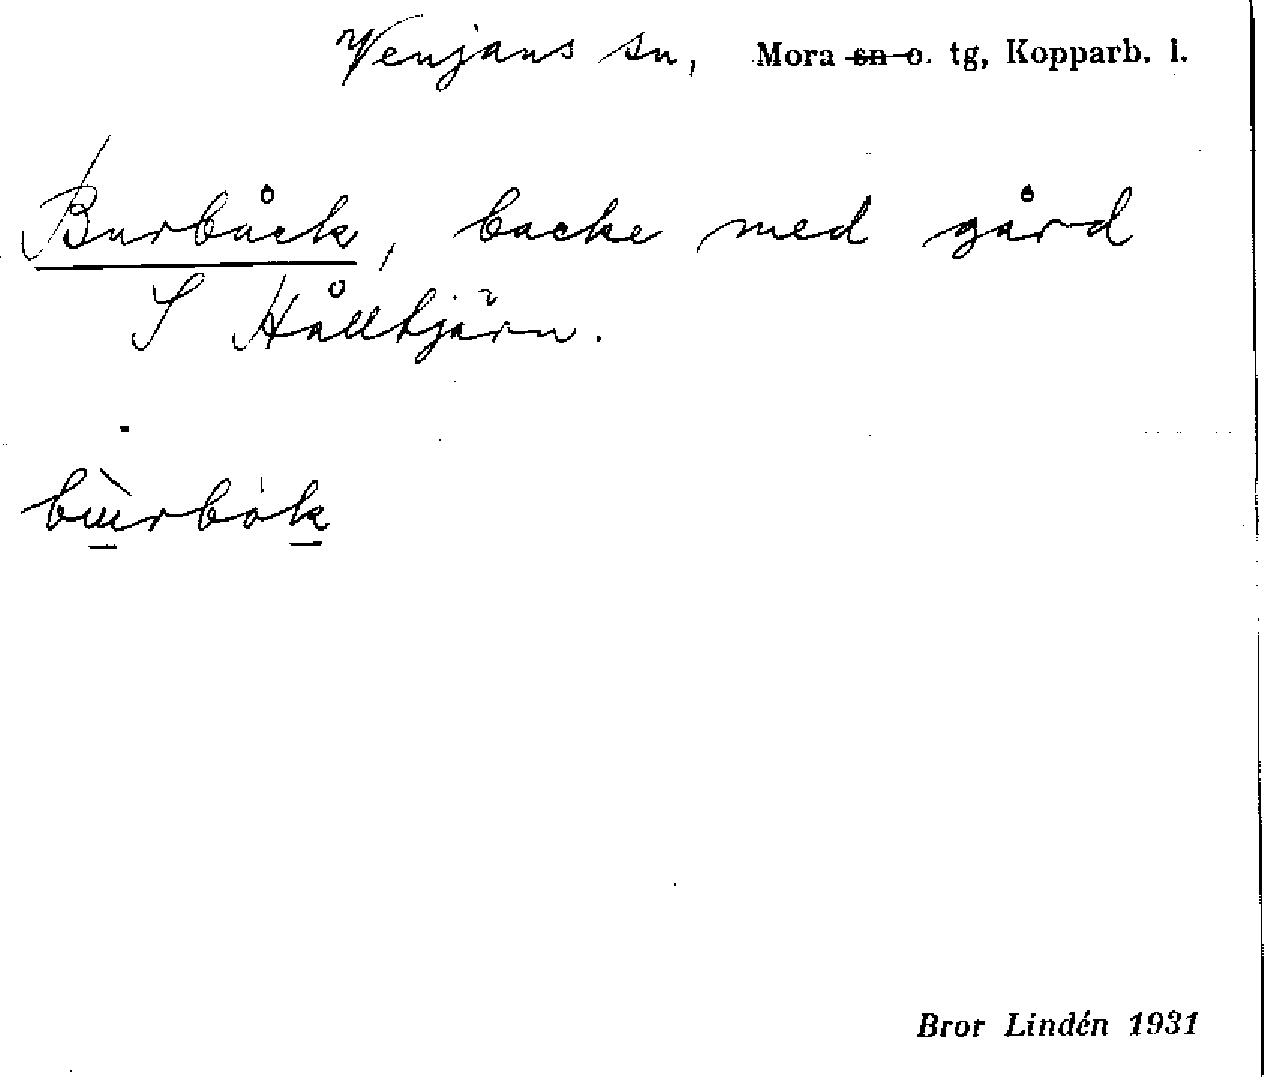 Venjans sn, Mora sn o. tg, Kopparb. l.
Burbåck, backe med gård
S Hålltjärn.
Bror Lindén 1931